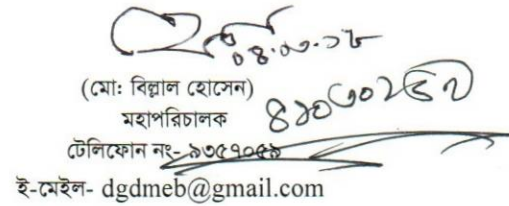 ০৪.০৩.১৮
(মো: বিল্লাল হোসেন)
মহাপরিচালক
৪১০৩০২৫৭
টেলিফোন নং- ৯৩৫৭০৫৯
ই-মেইল- dgdmeb@gmail.com